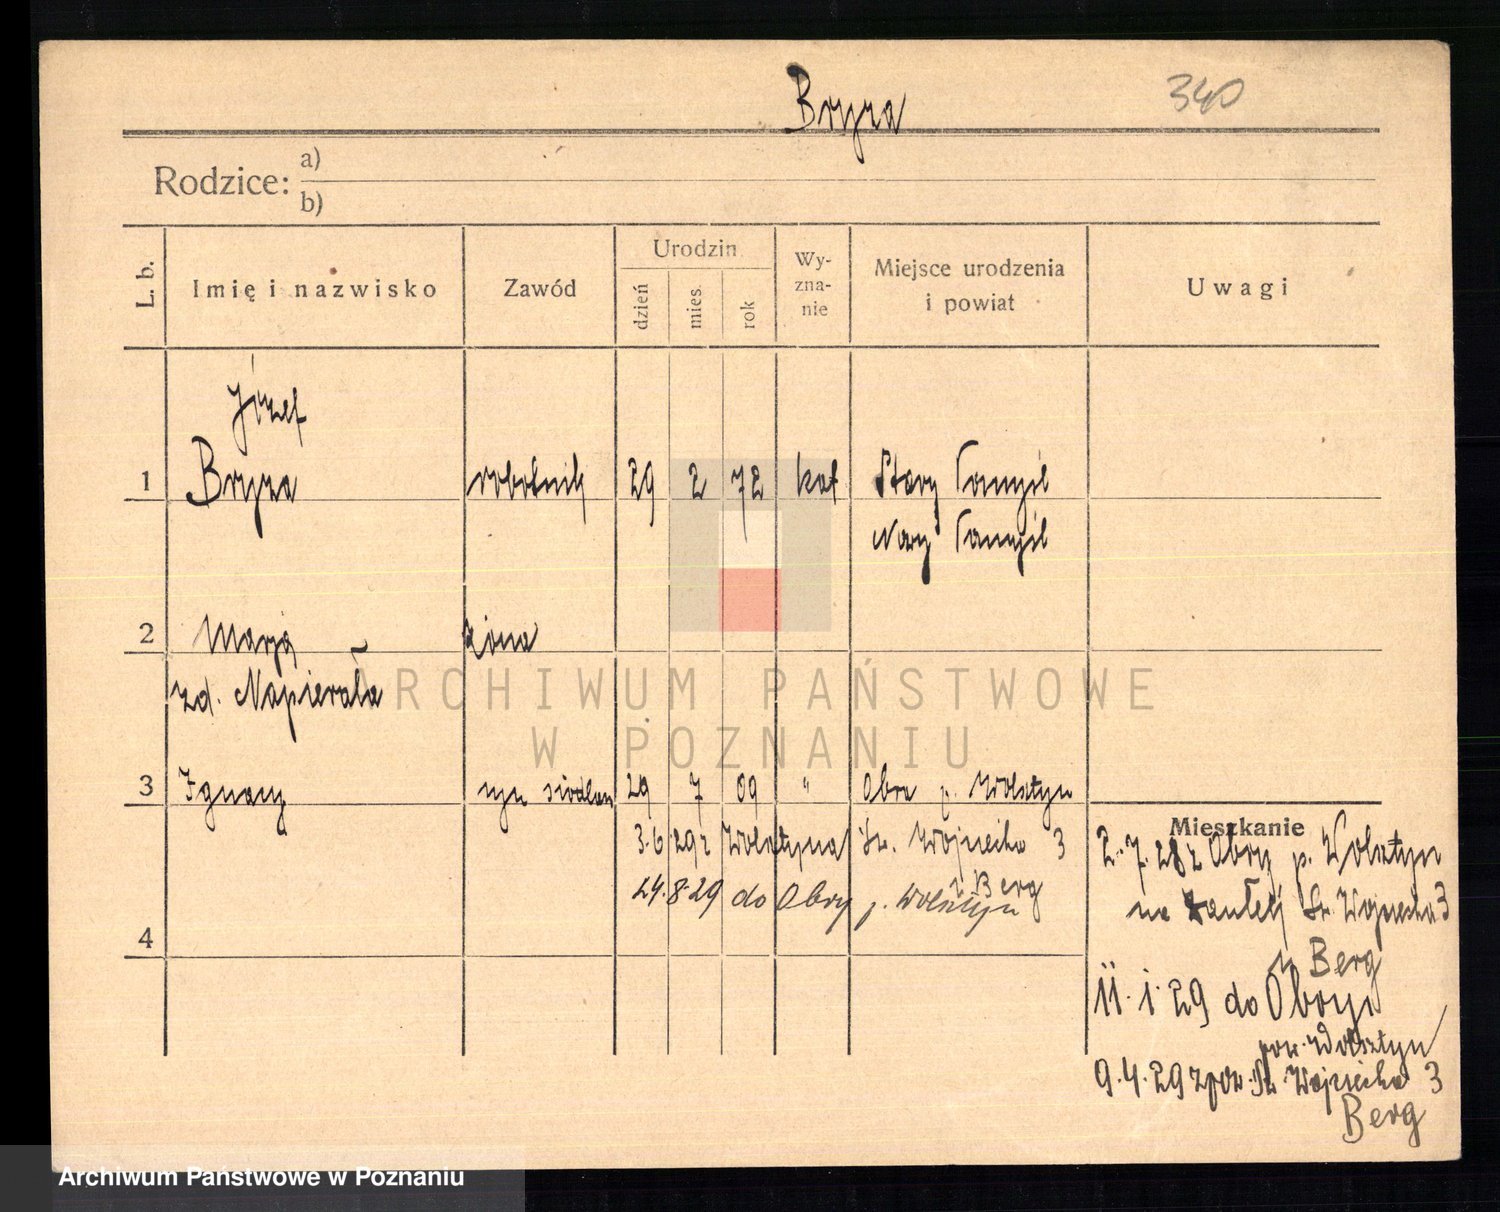 Bryza
340
Rodzice:
a)
b)
L. b.
Imię i nazwisko
Zawód
Urodzin
dzień
mies.
rok
Wy-
zna-
nie
Miejsce urodzenia
i powiat
Uwagi
Józef
1 Bryza robotnik 29 2 72 kat Stary Tomyśl
Nowy Tomyśl
2 Marja żona
zd. Napierała
3 Ignacy syn siodlarz 29 7 09 " Obra p. Wolsztyn
3.6.29 z Wolsztyna Św. Wojciecha 3
z Berg
24.8.29 do Obry p. Wolsztyn
4
Mieszkanie
2.7.28 z Obry p. Wolsztyn
na Św. Wojciecha 3
z Berg
11.1.29 do Obry
pow. Wolsztyn
9.4.29 z pow. Św. Wojciecha 3
Berg
ARCHIWUM PAŃSTWOWE
W POZNANIU
Archiwum Państwowe w Poznaniu